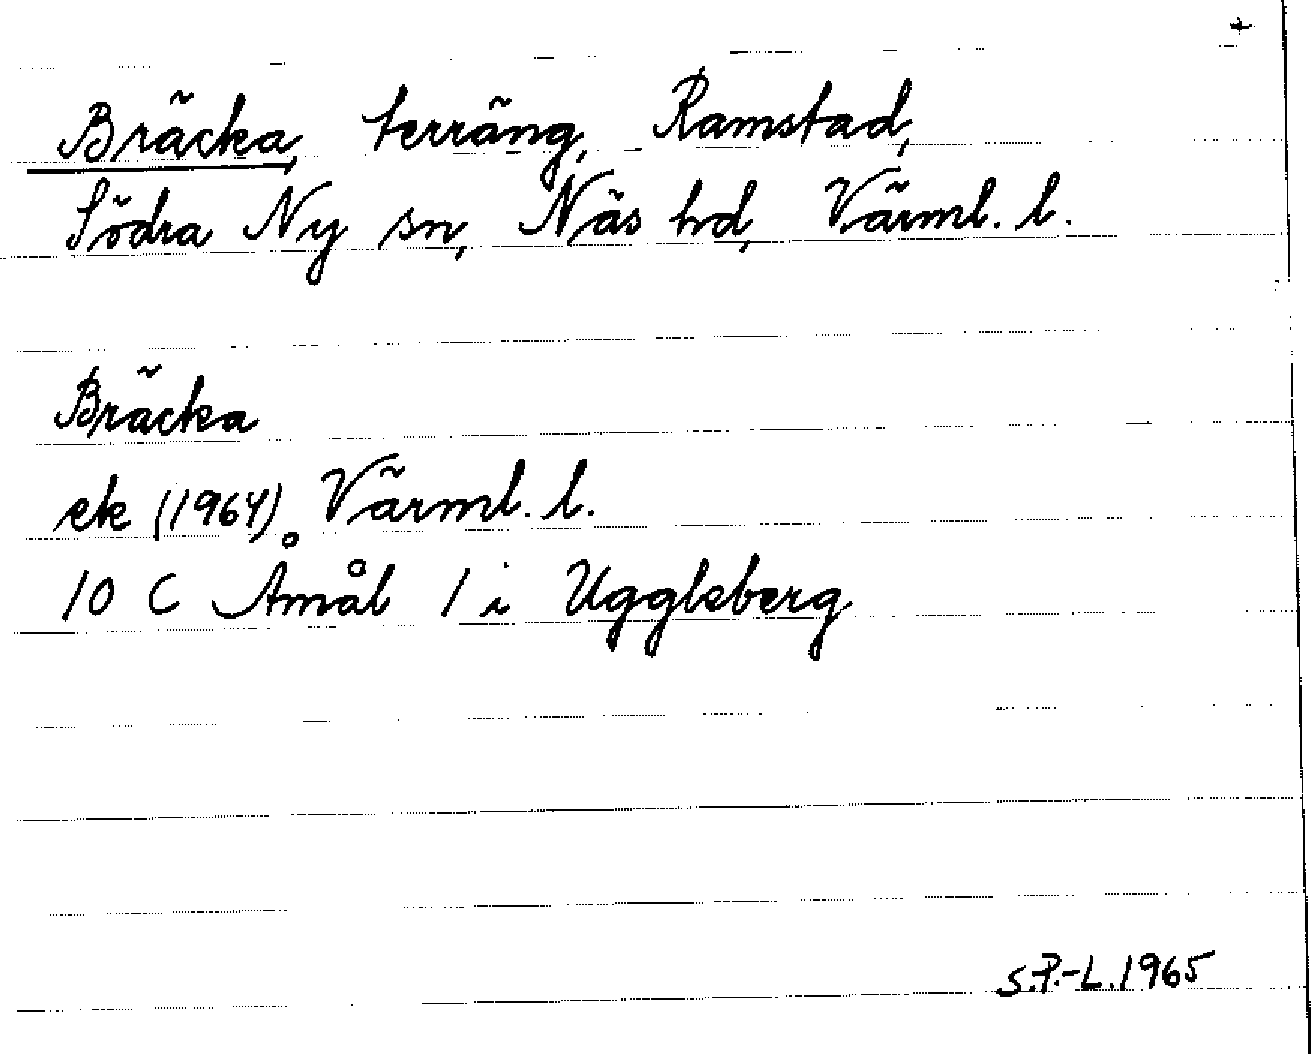 +
Bräcka, terräng, Ramstad,
Södra Ny sn, Näs hd, Värml. l.
Bräcka
ek (1964) Värml. l.
10 C Åmål 1 i Uggleberg
S.P.-L. 1965